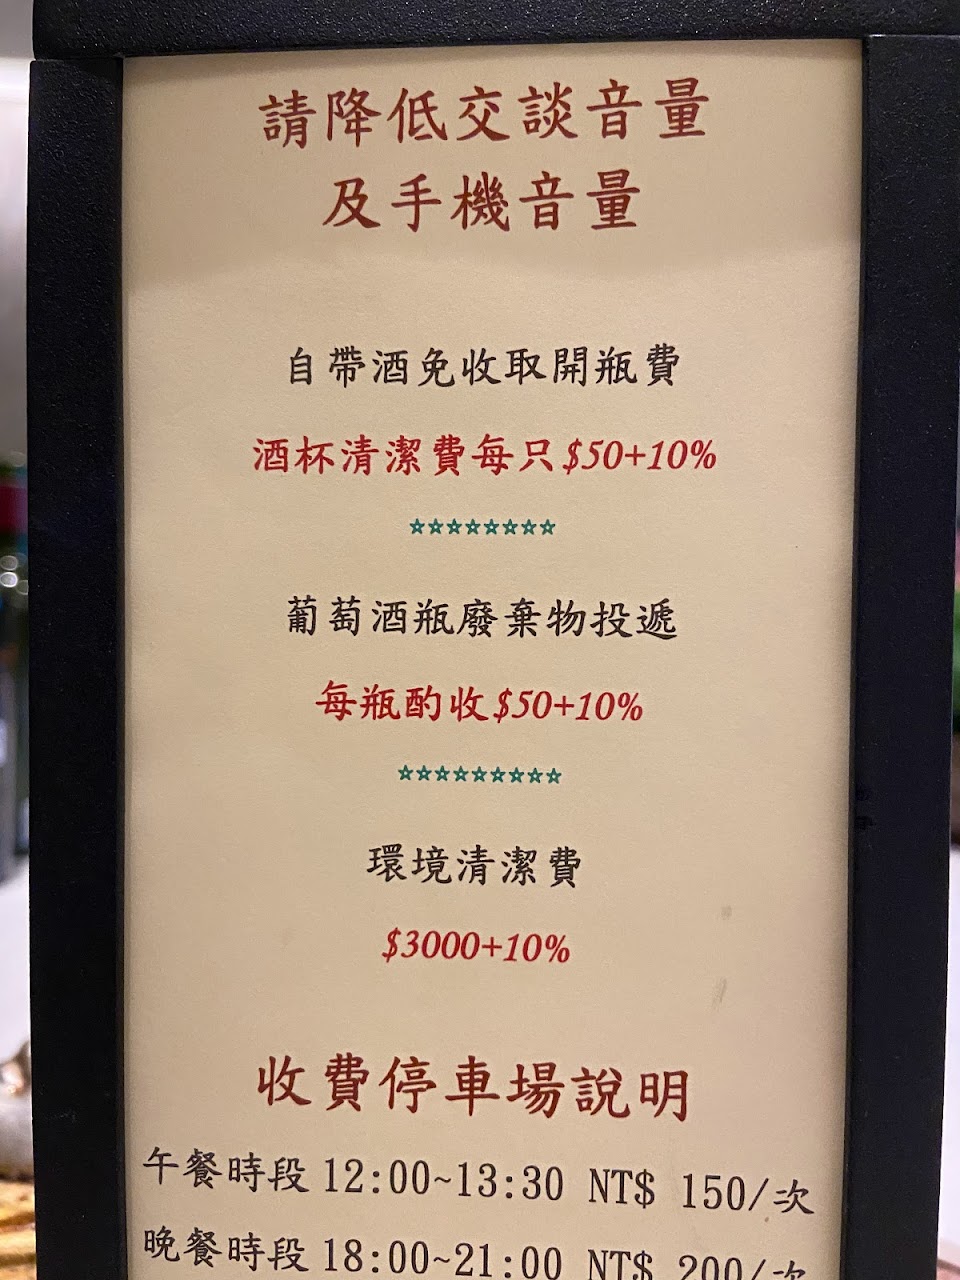 請降低交談音量
及手機音量
自帶酒免收取開瓶費
酒杯清潔費每只$50+10%
☆☆☆☆☆☆☆☆
葡萄酒瓶廢棄物投遞
每瓶酌收$50+10%
☆☆☆☆☆☆☆☆☆
環境清潔費
$3000+10%
收費停車場說明
午餐時段 12:00~13:30 NT$ 150/次
晚餐時段 18:00~21:00 NT$ 200/次